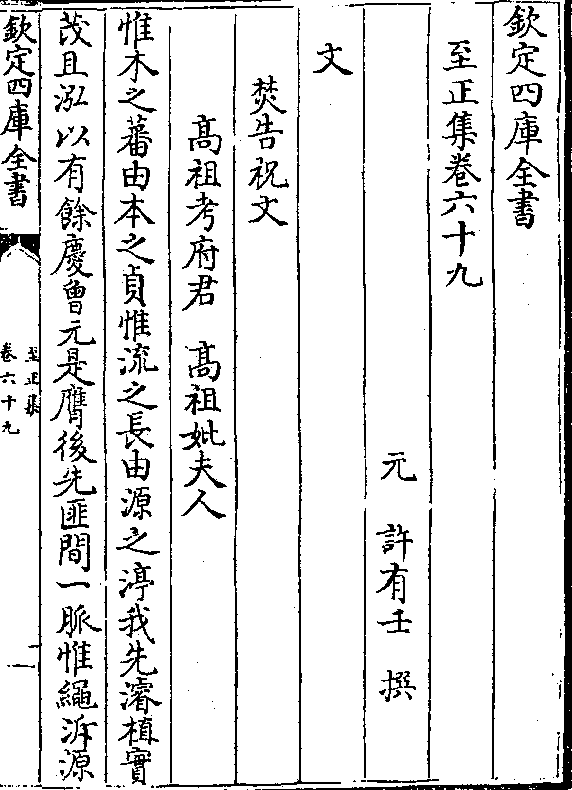 欽定四庫全書
至正集卷六十九
元　許有壬　撰
文
焚告祝文
髙祖考府君　髙祖妣夫人
惟木之蕃由本之貞惟流之長由源之渟我先濬植實
茂且泓以有餘慶曾元是膺後先匪間一脈惟繩泝源
欽定四庫全書
至正集
卷六十九
一